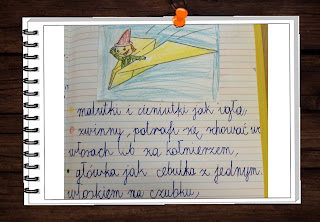 malutki i cieniutki jak igła,
zwinny, potrafi się schować we
włosach lub za kołnierzem,
główka jak cebulka z jednym
włoskiem na czubku,